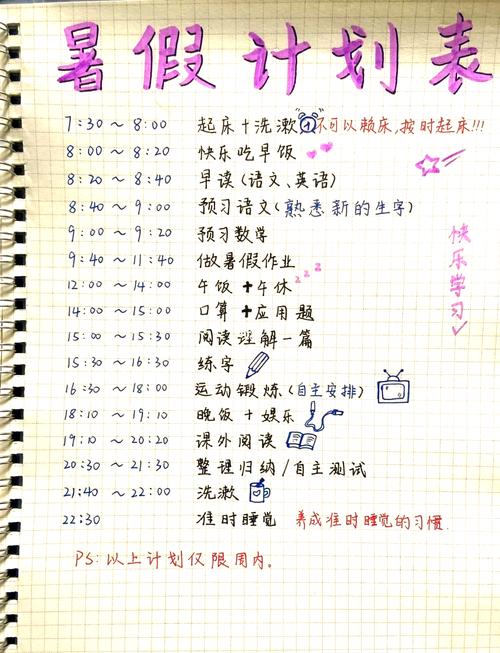 暑假计划表
7:30 ~ 8:00 起床+洗漱 不可以赖床,按时起床!!!
8:00 ~ 8:20 快乐吃早饭
8:20 ~ 8:40 早读(语文、英语)
8:40 ~ 9:00 预习语文(熟悉新的生字)
9:00 ~ 9:20 预习数学
9:40 ~ 11:40 做暑假作业
12:00 ~ 14:00 午饭+午休 zzz
14:00 ~ 15:00 口算+应用题
15:00 ~ 15:30 阅读理解一篇
15:30 ~ 16:30 练字
16:30 ~ 18:00 运动锻炼(自主安排)
18:10 ~ 19:10 晚饭+娱乐
19:10 ~ 20:20 课外阅读
20:30 ~ 21:30 整理归纳/自主测试
21:40 ~ 22:00 洗漱
22:30 准时睡觉 养成准时睡觉的习惯.
PS:以上计划仅限周内。
快乐学习